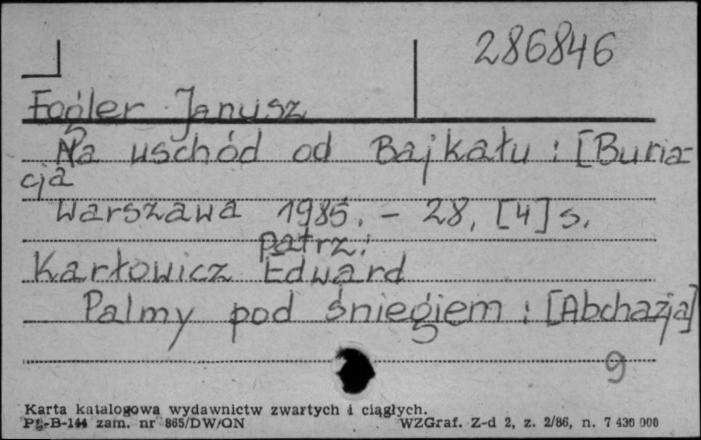 286846
Fogler Janusz
Na wschód od Bajkału : [Buria-
cja
Warszawa 1985. - 28, [4] s.
patrz:
Karłowicz Edward
Palmy pod śniegiem : [Abchazja]
9
Karta katalogowa wydawnictw zwartych i ciągłych.
PŚ-B-144 zam. nr 865/DW/ON WZGraf. Z-d 2, z. 2/86, n. 7 430 000